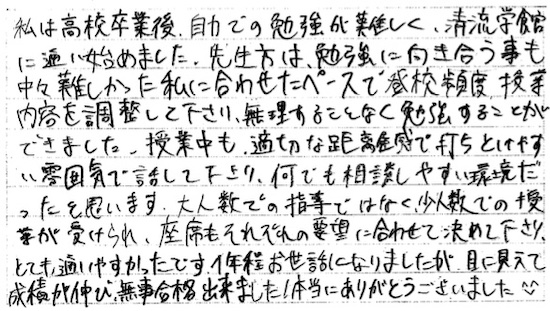 私は高校卒業後、自力での勉強が難しく、清流学館
に通い始めました。先生方は、勉強に向き合う事も
中々難しかった私に合わせたペースで登校頻度、授業
内容を調整して下さり、無理することなく勉強することが
できました。授業中も、適切な距離感で打ちとけやす
い雰囲気で話して下さり、何でも相談しやすい環境だ
ったと思います。大人数での指導ではなく、少人数での授
業が受けられ、座席もそれぞれの要望に合わせて決めて下さり、
とても通いやすかったです。1年程お世話になりましたが、目に見えて
成績が伸び、無事合格出来ました!本当にありがとうございました